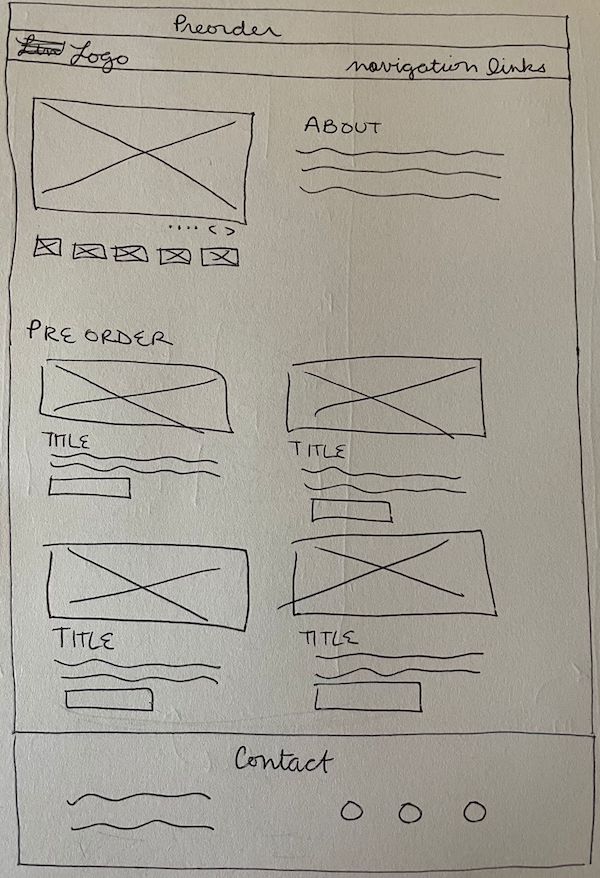 Preorder
Logo
navigation links
ABOUT
PRE ORDER
TITLE
TITLE
TITLE
TITLE
Contact